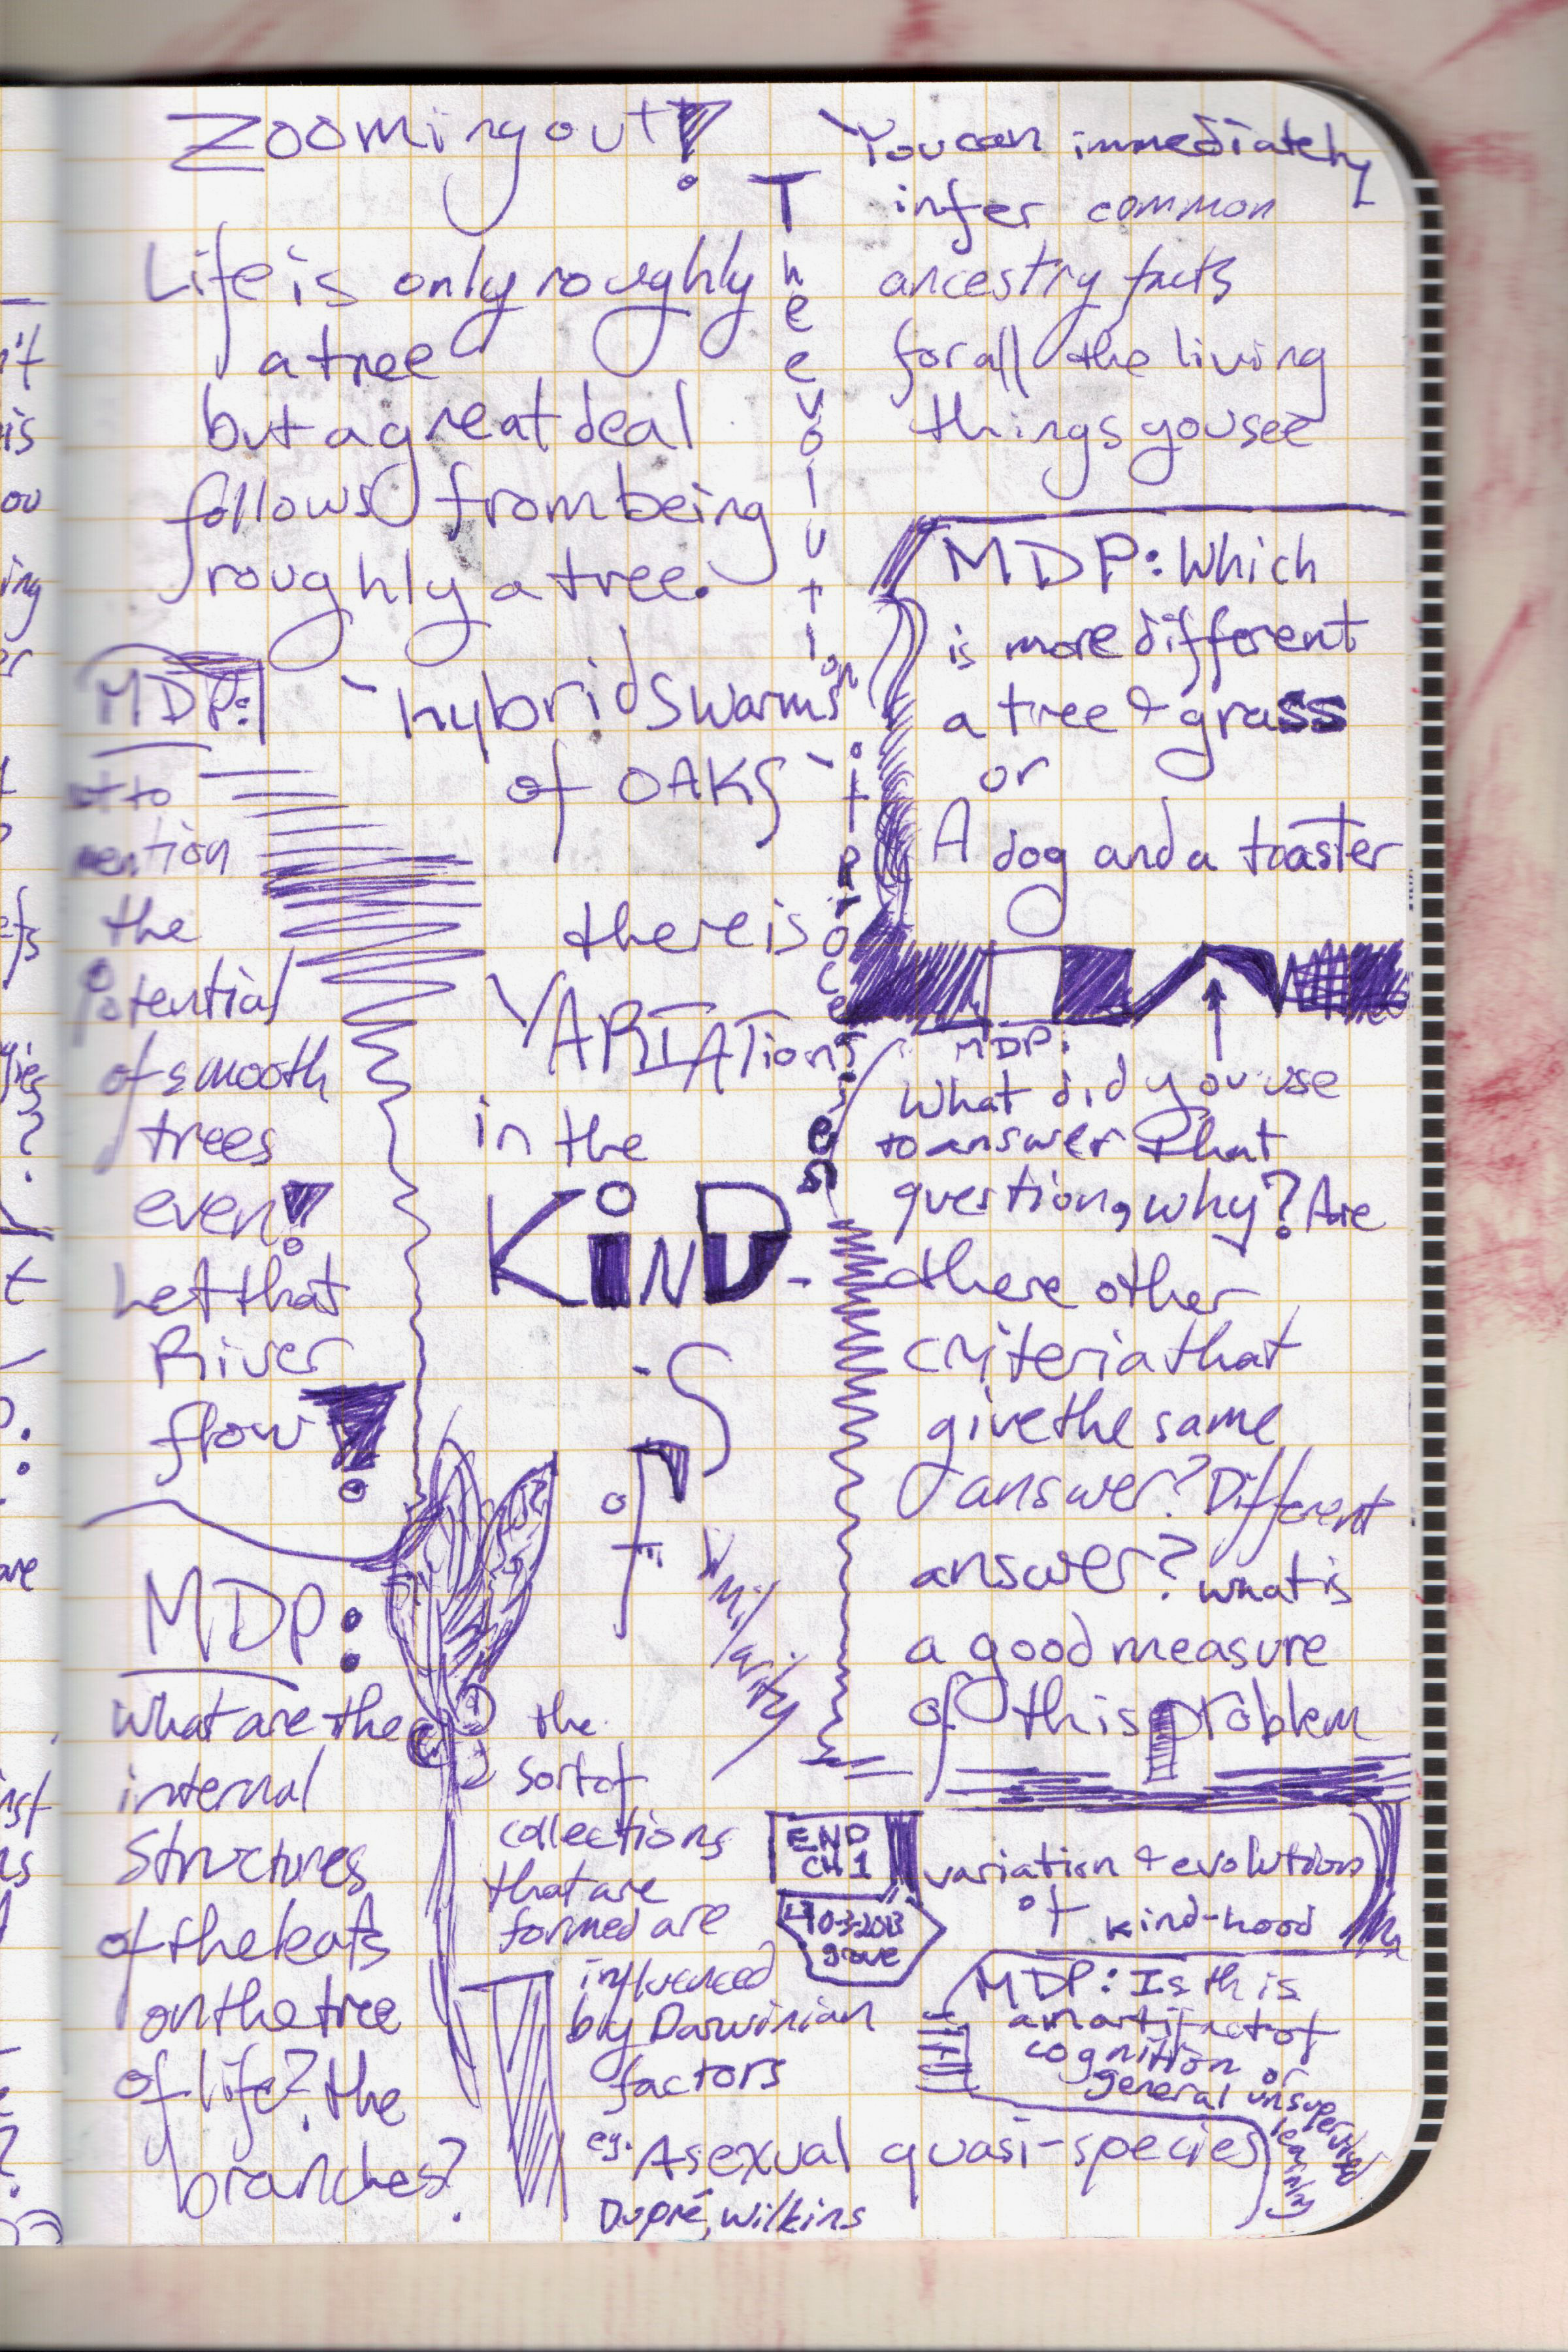 Zooming out!
Life is only roughly
a tree
but a great deal
follows from being
roughly a tree.
MDP:
not to
mention
the
potential
of smooth
trees
even!
Let that
River
flow!
MDP:
what are the
internal
Structures
of the leafs
on the tree
of life? the
branches?
hybrid swarms
of OAKS
there is
VARIATIONS
in the
KIND-
-S
of
similarity
the
sort of
collections
that are
formed are
influenced
by Darwinian
factors
eg. Asexual quasi-species
Dupré, Wilkins
The evolution
of
processes
You can immediately
infer common
ancestry facts
for all the living
things you see
MDP: Which
is more different
a tree & grass
or
A dog and a toaster
MDP:
What did you use
to answer that
question, why? Are
there other
criteria that
give the same
answer? Different
answer? what is
a good measure
of this problem
END
CH 1
10-3-2013
grove
variation & evolution
of kind-hood
MDP: Is this
an artifact of
cognition or
general unsupervised
learning